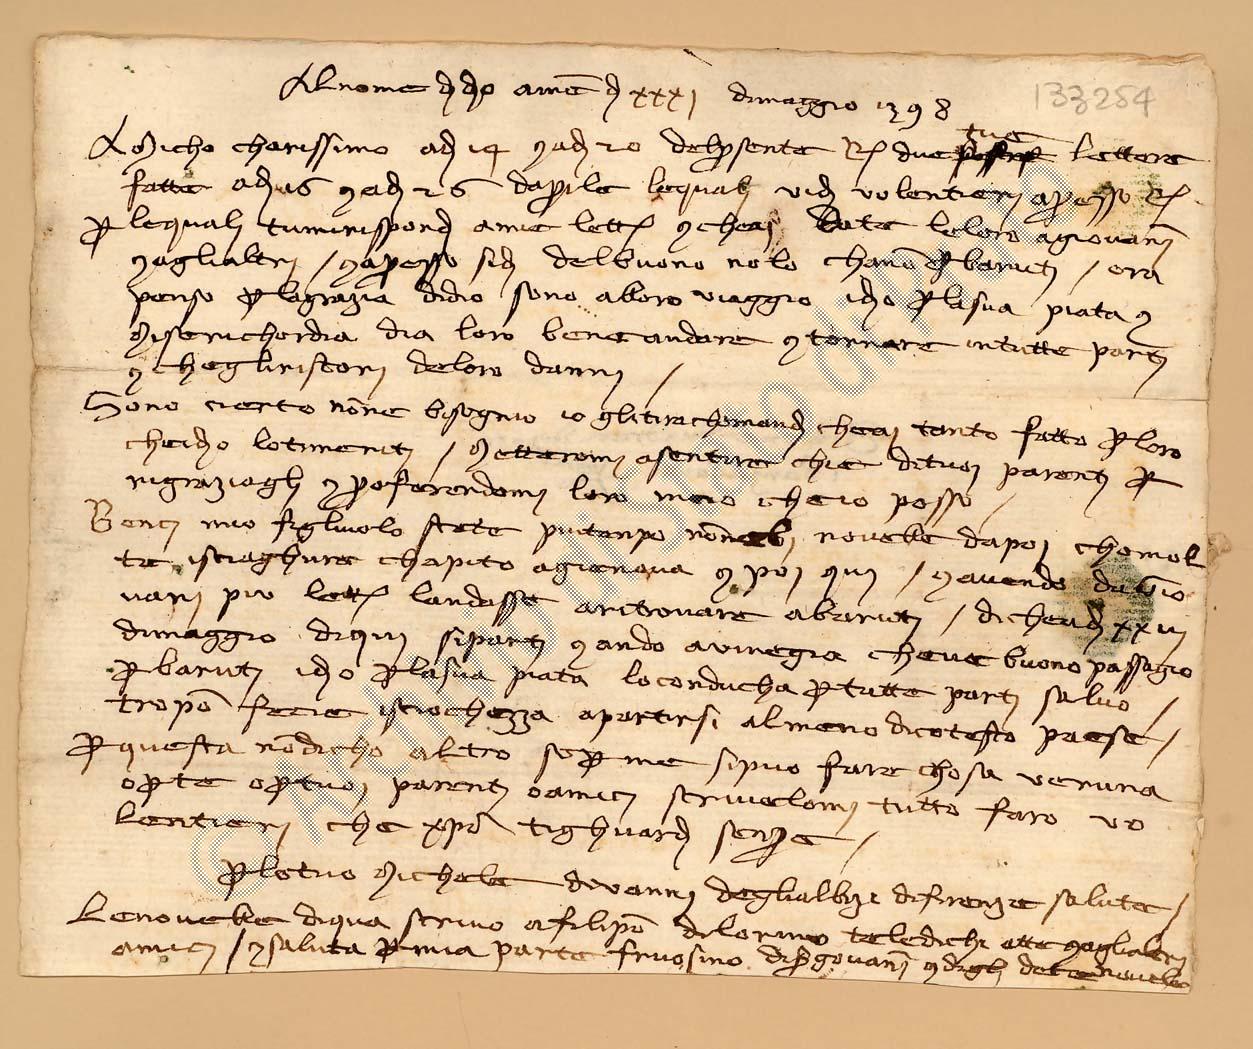 Al nome di dio amē dì xxxj di maggio 1398
133254
Amicho charissimo a dì 14 e a dì 20 del presente R due tue lettere
fatte a dì 16 e a dì 26 d aprile le quali vidi volentieri apresso R
p le quali tu mi rispondi a mie lett e che ai date le loro a giovanī
e agli altri / e apresso si di del buono nolo ch anō p baruti / ora
penso p la grazia di dio sono a loro viaggio idio p la sua piata e
miserichordia dia loro bene andare e tornare in tutte parti
e che gli ristori de loro danni /
Sono cierto nōne bisognio io gli ti rachomandi che ai tanto fatto p loro
che idio lo ti meriti / metteromi a sentire chi e di tuoi parenti p
rigraziagli e proferendomi loro in cio che io posso /
Benci mio figliuolo stete piu tenpo nōn ebi novelle dapoi cho mol
te isciaghure chapito a gienova e poi qui / e avendo da gio
vani piu lett l andasse a ritrovare a baruti / di che a dì xxiij
di maggio di qui si parti e ando a vinegia che v e buono passagio
p baruti idio p la sua piata lo conducha p tutte parti salvo /
tropo fecie isciochezza a partirsi almeno di cotesto paese /
p questa nō dicho altro se p me si puo fare chosa veruna
o p te o p tuoi parenti o amici scrivelomi tutto faro vo
lentieri che xpō ti ghuardi senpre /
p lo tuo Michele di vanni degli albizi di firenze salute /
Le novelle di qua scrivo a filipo di lorino te le dichi a tte e agli altri
amici / e saluta p mia parte fruosino di s giovanī e di gli de le novele